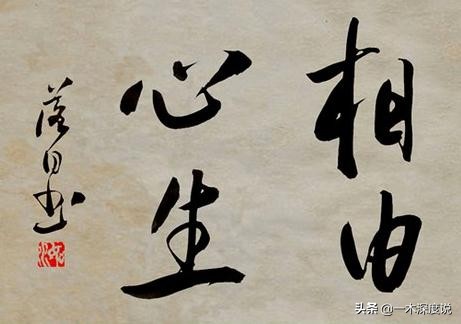 相由
心生
头条 @一木深度说